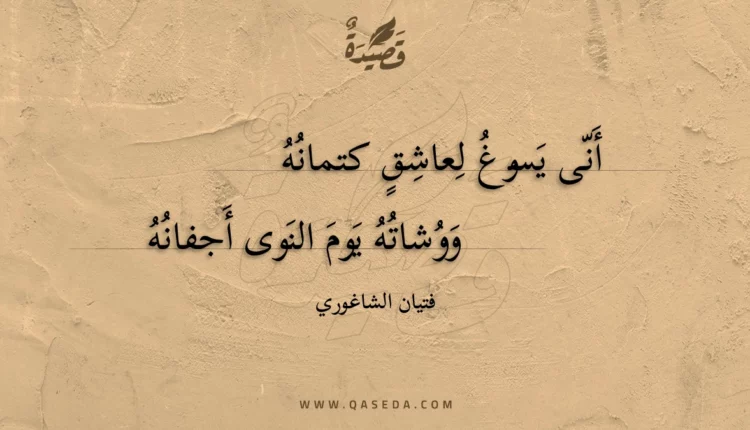 قَصِيْدَةٌ
أَنّى يَسوغُ لِعاشِقٍ كتمانُهُ
وَوُشاتُهُ يَومَ النَوى أَجفانُهُ
فتيان الشاغوري
WWW.QASEDA.COM